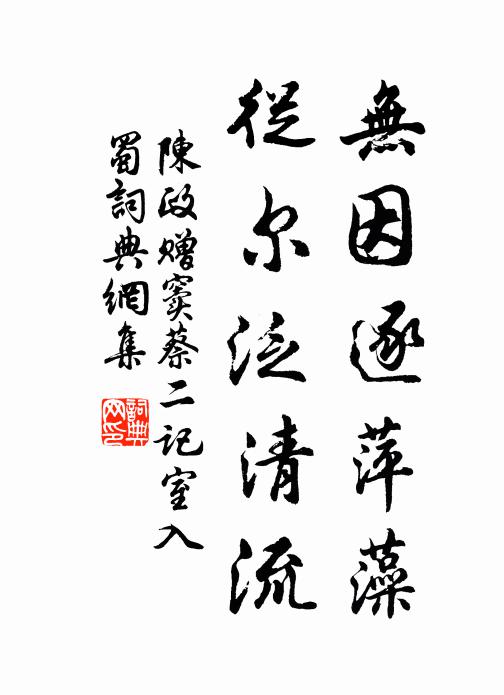 無因逐萍藻
從尔泛清流
陳政赠窦蔡二記室入
蜀詞典網集
詞典网印